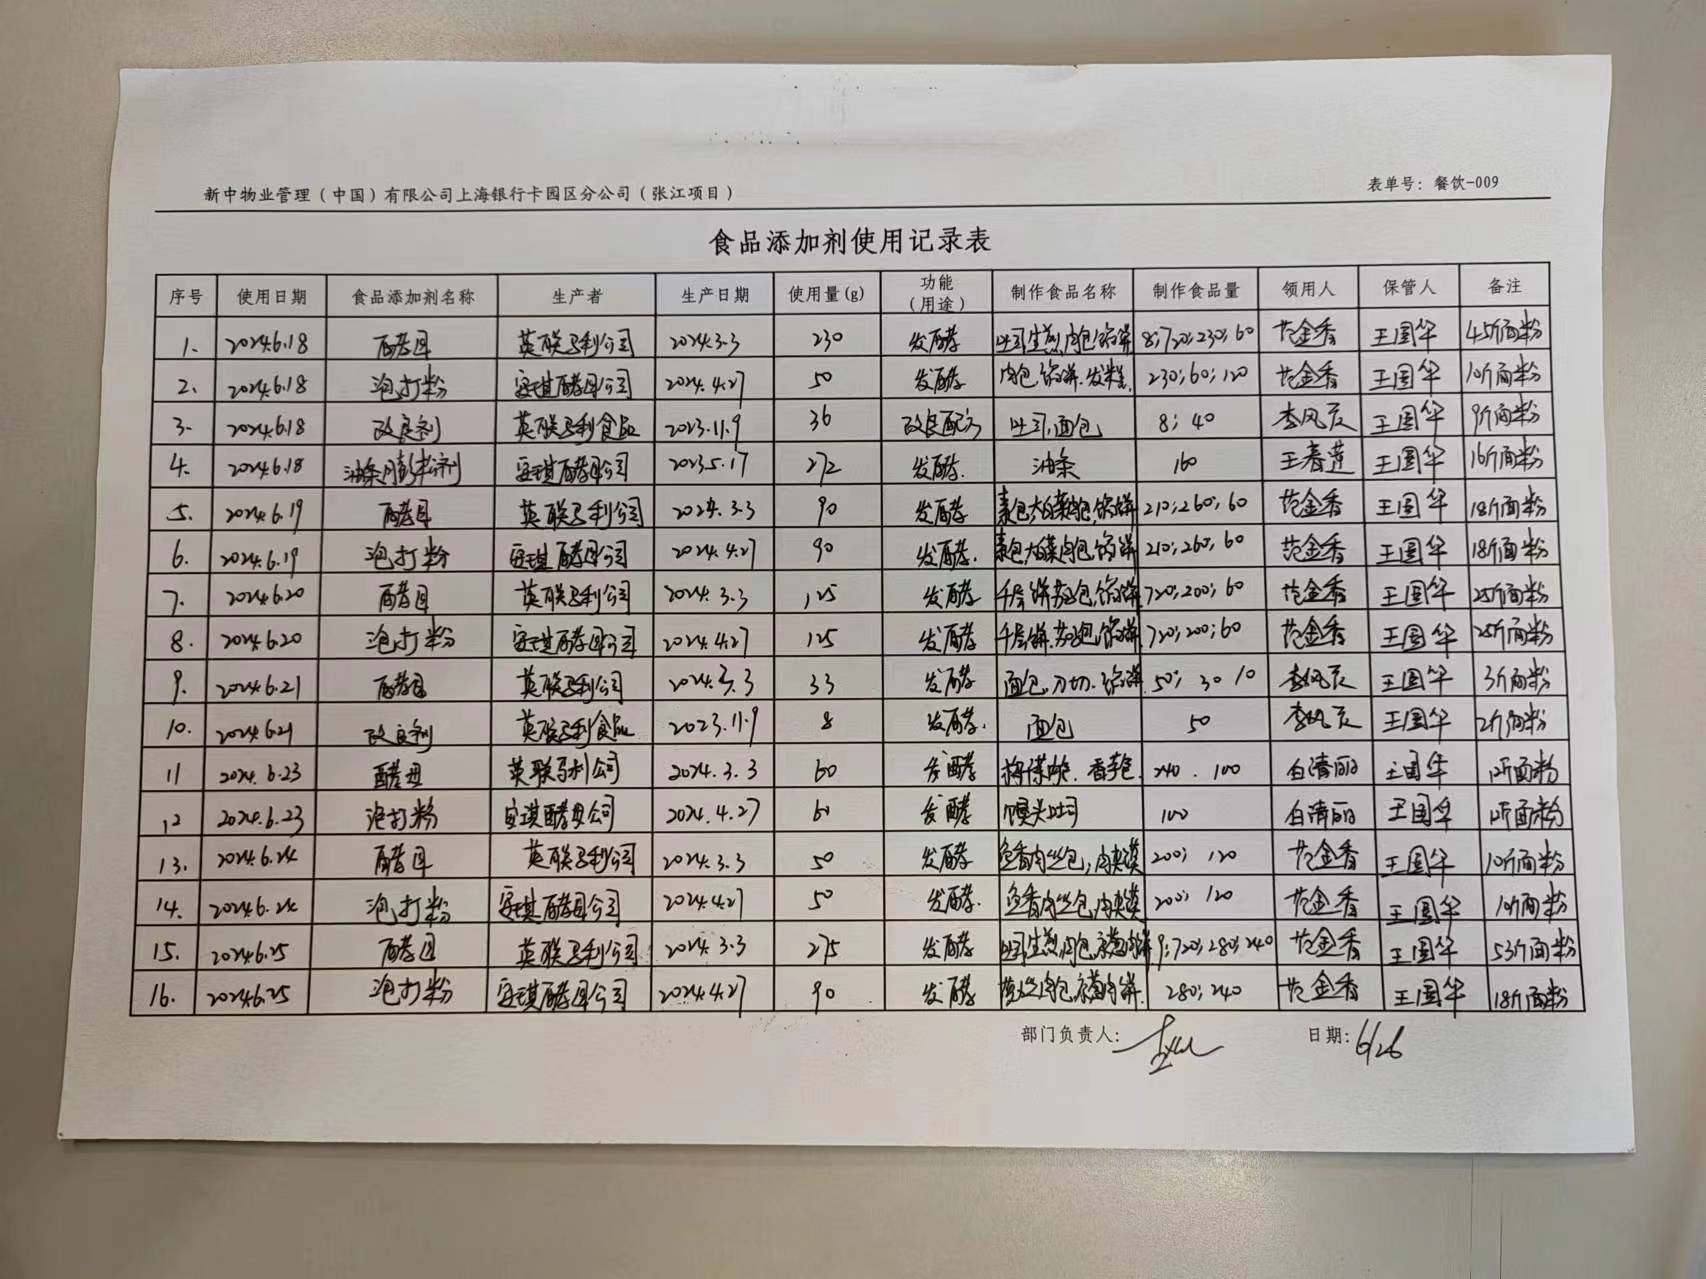 新中物业管理(中国)有限公司上海银行卡园区分公司(张江项目) 表单号: 餐饮-009
食品添加剂使用记录表
序号 使用日期 食品添加剂名称 生产者 生产日期 使用量(g) 功能(用途) 制作食品名称 制作食品量 领用人 保管人 备注
1. 2024.6.18 酵母 英联马利公司 2024.3.3 230 发酵 吐司,生煎,肉包,馅饼 8;720;230;60 范金香 王国华 45斤面粉
2. 2024.6.18 泡打粉 安琪酵母公司 2024.4.27 50 发酵 肉包,馅饼,发糕 230;60;120 范金香 王国华 10斤面粉
3. 2024.6.18 改良剂 英联马利食品 2023.11.9 36 改良面 吐司,面包 8;40 李风 王国华 9斤面粉
4. 2024.6.18 油条膨松剂 安琪酵母公司 2023.5.17 272 发酵. 油条 160 王春莲 王国华 16斤面粉
5. 2024.6.19 酵母 英联马利公司 2024.3.3 90 发酵 素包,大白菜肉包,馅饼 210;260;60 范金香 王国华 18斤面粉
6. 2024.6.19 泡打粉 安琪酵母公司 2024.4.27 90 发酵. 素包,大白菜肉包,馅饼 210;260;60 范金香 王国华 18斤面粉
7. 2024.6.20 酵母 英联马利公司 2024.3.3 125 发酵 千层饼,包,馅饼 720;200;60 范金香 王国华 25斤面粉
8. 2024.6.20 泡打粉 安琪酵母公司 2024.4.27 125 发酵 千层饼,包,馅饼 720;200;60 范金香 王国华 25斤面粉
9. 2024.6.21 酵母 英联马利公司 2024.3.3 33 发酵 面包,刀切,馅饼 50; 30 10 李风 王国华 3斤面粉
10. 2024.6.21 改良剂 英联马利食品 2023.11.9 8 发酵. 面包 50 李风 王国华 2斤面粉
11 2024.6.23 酵母 英联马利公司 2024.3.3 60 发酵 240. 100 白清丽 王国华 12斤面粉
12 2024.6.23 泡打粉 安琪酵母公司 2024.4.27 60 发酵 馒头吐司 100 白清丽 王国华 12斤面粉
13. 2024.6.24 酵母 英联马利公司 2024.3.3 50 发酵 鱼香肉丝包,肉夹馍 200; 120 范金香 王国华 10斤面粉
14. 2024.6.24 泡打粉 安琪酵母公司 2024.4.27 50 发酵. 鱼香肉丝包,肉夹馍 200; 120 范金香 王国华 10斤面粉
15. 2024.6.25 酵母 英联马利公司 2024.3.3 275 发酵 吐司,生煎,肉包,肉饼 9;720;280;240 范金香 王国华 53斤面粉
16. 2024.6.25 泡打粉 安琪酵母公司 2024.4.27 90 发酵 肉包,肉饼. 280;240 范金香 王国华 18斤面粉
部门负责人: 日期: 6/26